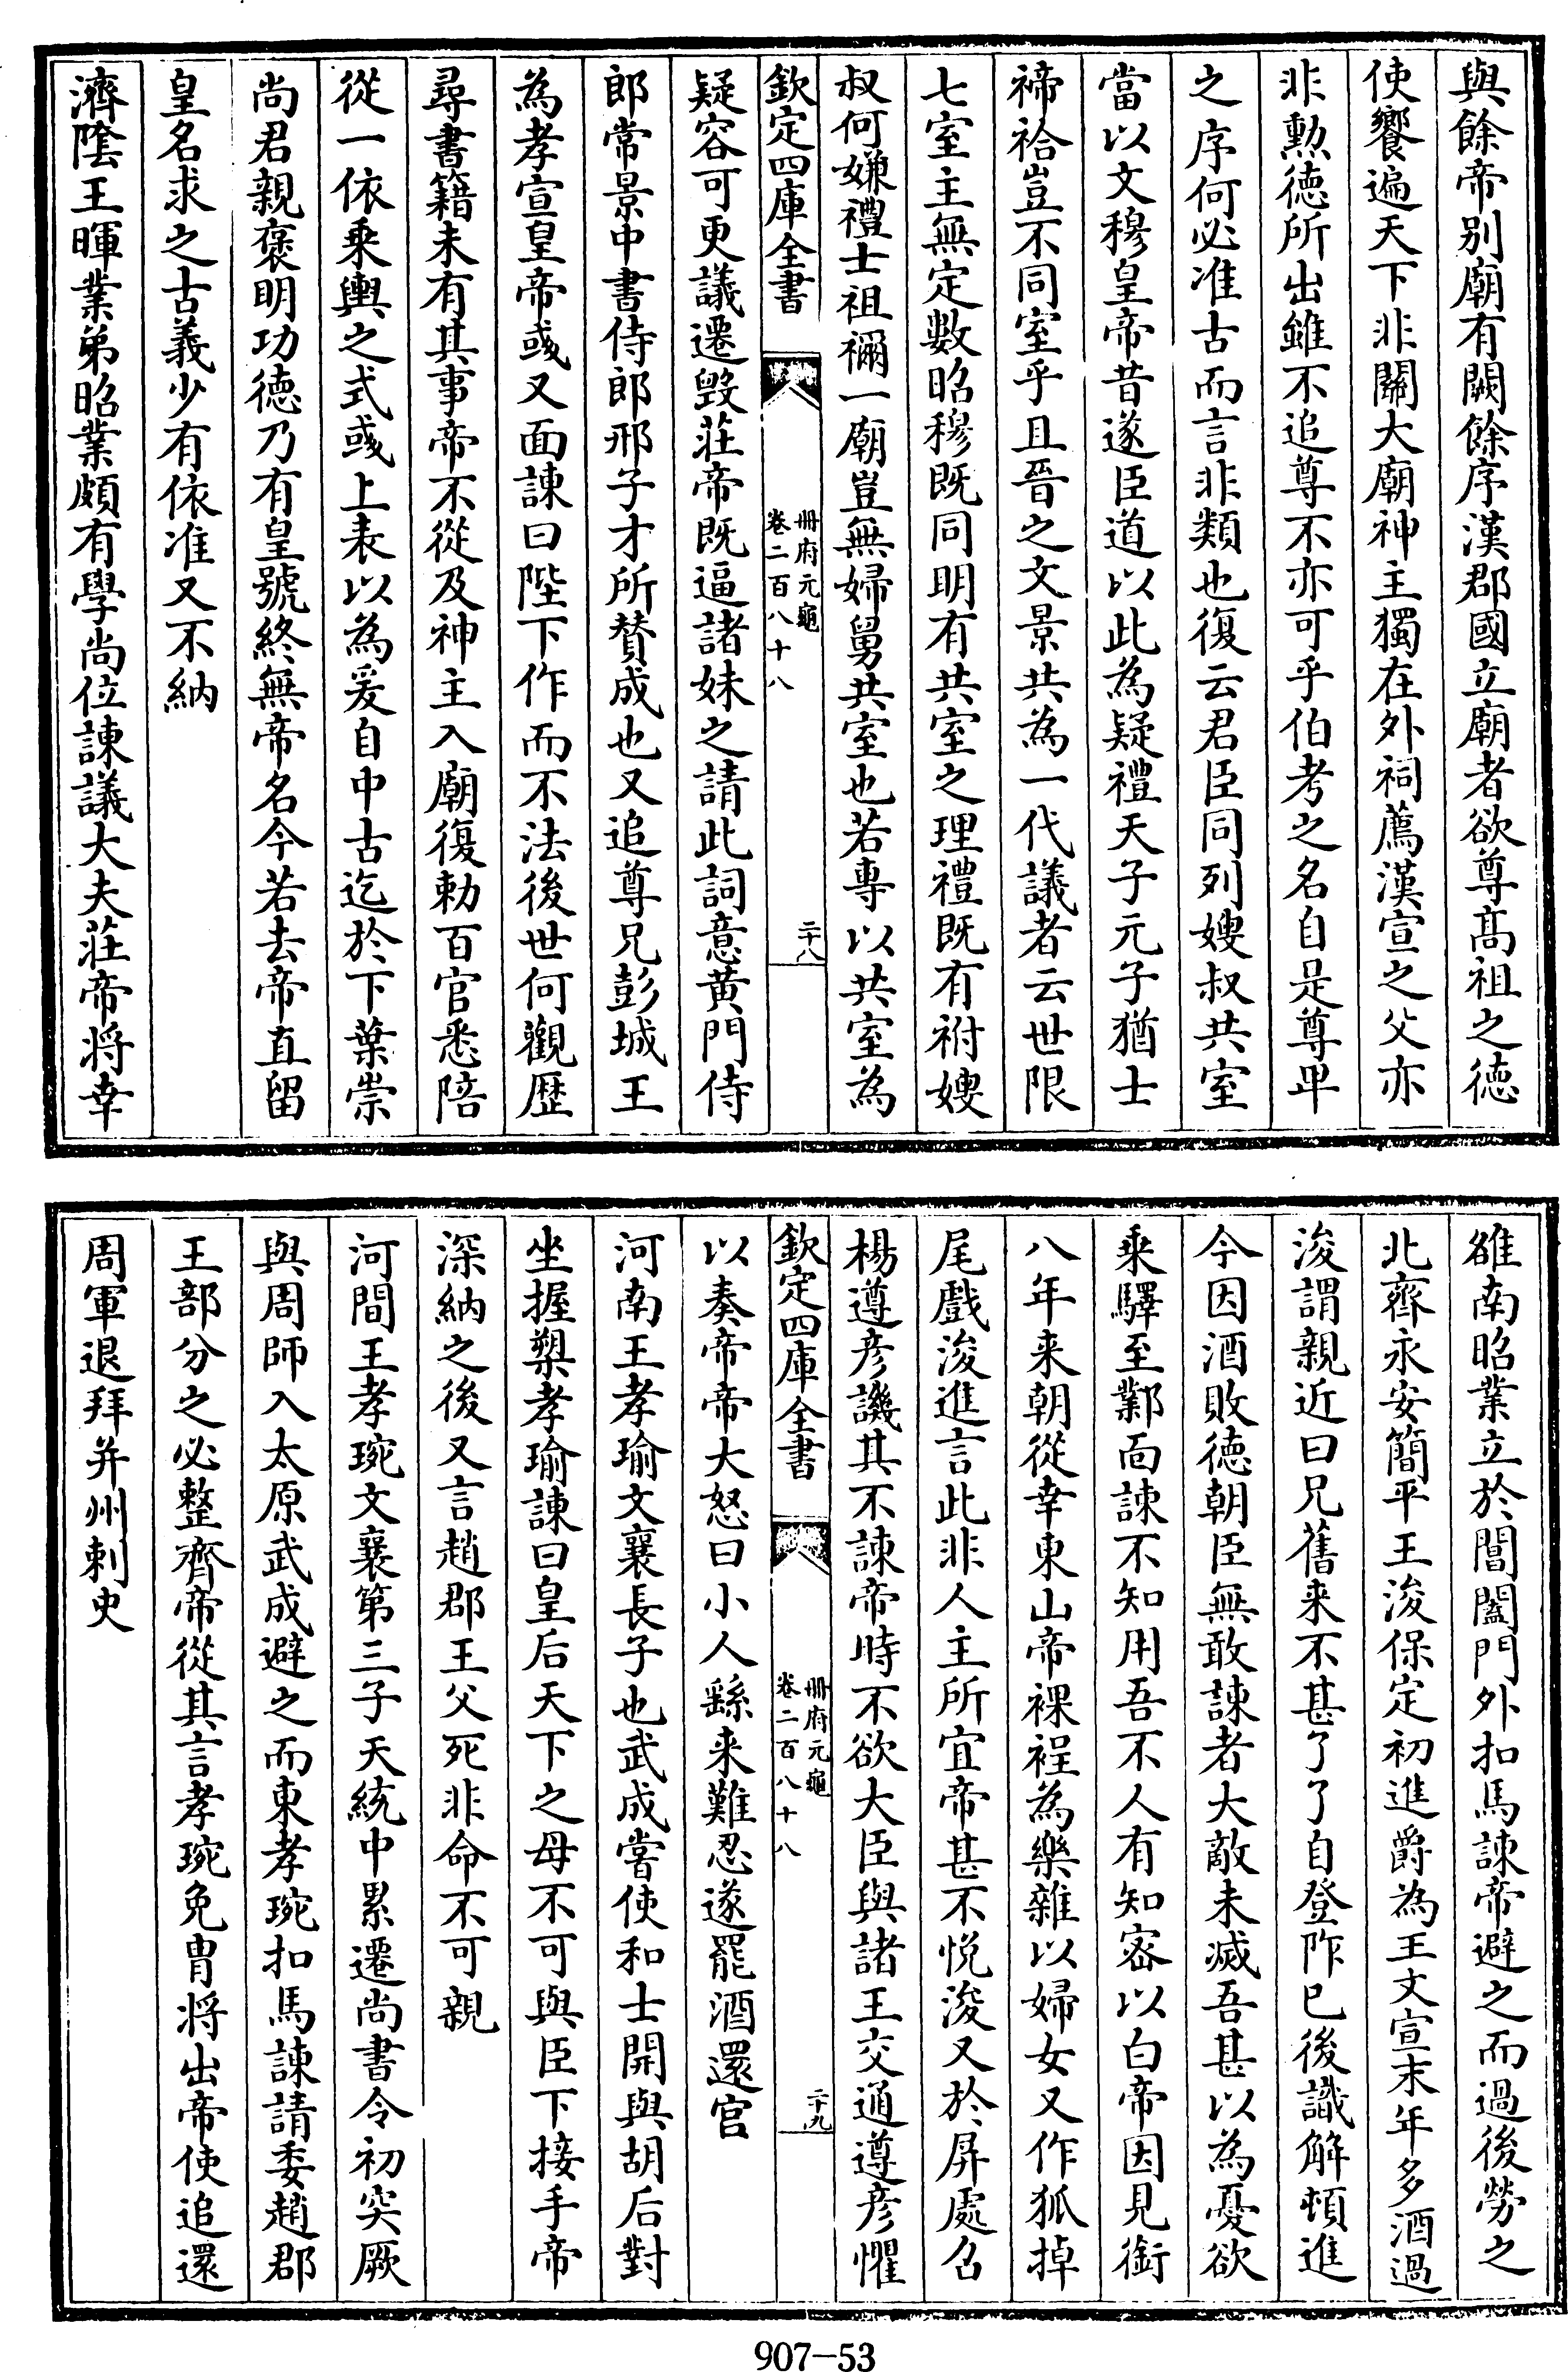 與餘帝别廟有闕餘序漢郡國立廟者欲尊髙祖之徳
使饗遍天下非關大廟神主獨在外祠薦漢宣之父亦
非勲徳所出雖不追尊不亦可乎伯考之名自是尊卑
之序何必准古而言非類也復云君臣同列嫂叔共室
當以文穆皇帝昔遂臣道以此為疑禮天子元子猶士
禘祫豈不同室乎且晉之文景共為一代議者云世限
七室主無定數昭穆既同明有共室之理禮既有祔嫂
叔何嫌禮士祖禰一廟豈無婦舅共室也若專以共室為
欽定四庫全書
冊府元龜
卷二百八十八
二十八
疑容可更議遷毀莊帝既逼諸妹之請此詞意黄門侍
郎常景中書侍郎邢子才所賛成也又追尊兄彭城王
為孝宣皇帝彧又面諌曰陛下作而不法後世何觀歴
尋書籍未有其事帝不從及神主入廟復勅百官悉陪
從一依乘輿之式彧上表以為爰自中古迄於下葉崇
尚君親褒明功徳乃有皇號終無帝名今若去帝直留
皇名求之古義少有依准又不納
濟隂王暉業弟昭業頗有學尚位諌議大夫莊帝将幸
雒南昭業立於閶闔門外扣馬諌帝避之而過後勞之
北齊永安簡平王浚保定初進爵為王文宣末年多酒過
浚謂親近曰兄舊来不甚了了自登阼已後識解頓進
今因酒敗徳朝臣無敢諌者大敵未滅吾甚以為憂欲
乘驛至鄴面諌不知用吾不人有知宻以白帝因見銜
八年来朝從幸東山帝裸裎為樂雜以婦女又作狐掉
尾戲浚進言此非人主所宜帝甚不悦浚又於屏處召
楊遵彦譏其不諌帝時不欲大臣與諸王交通遵彦懼
欽定四庫全書
冊府元龜
卷二百八十八
二十九
以奏帝帝大怒曰小人繇来難忍遂罷酒還宫
河南王孝瑜文襄長子也武成嘗使和士開與胡后對
坐握槊孝瑜諌曰皇后天下之母不可與臣下接手帝
深納之後又言趙郡王父死非命不可親
河間王孝琬文襄第三子天統中累遷尚書令初突厥
與周師入太原武成避之而東孝琬扣馬諌請委趙郡
王部分之必整齊帝從其言孝琬免胄将出帝使追還
周軍退拜并州刺史
907-53